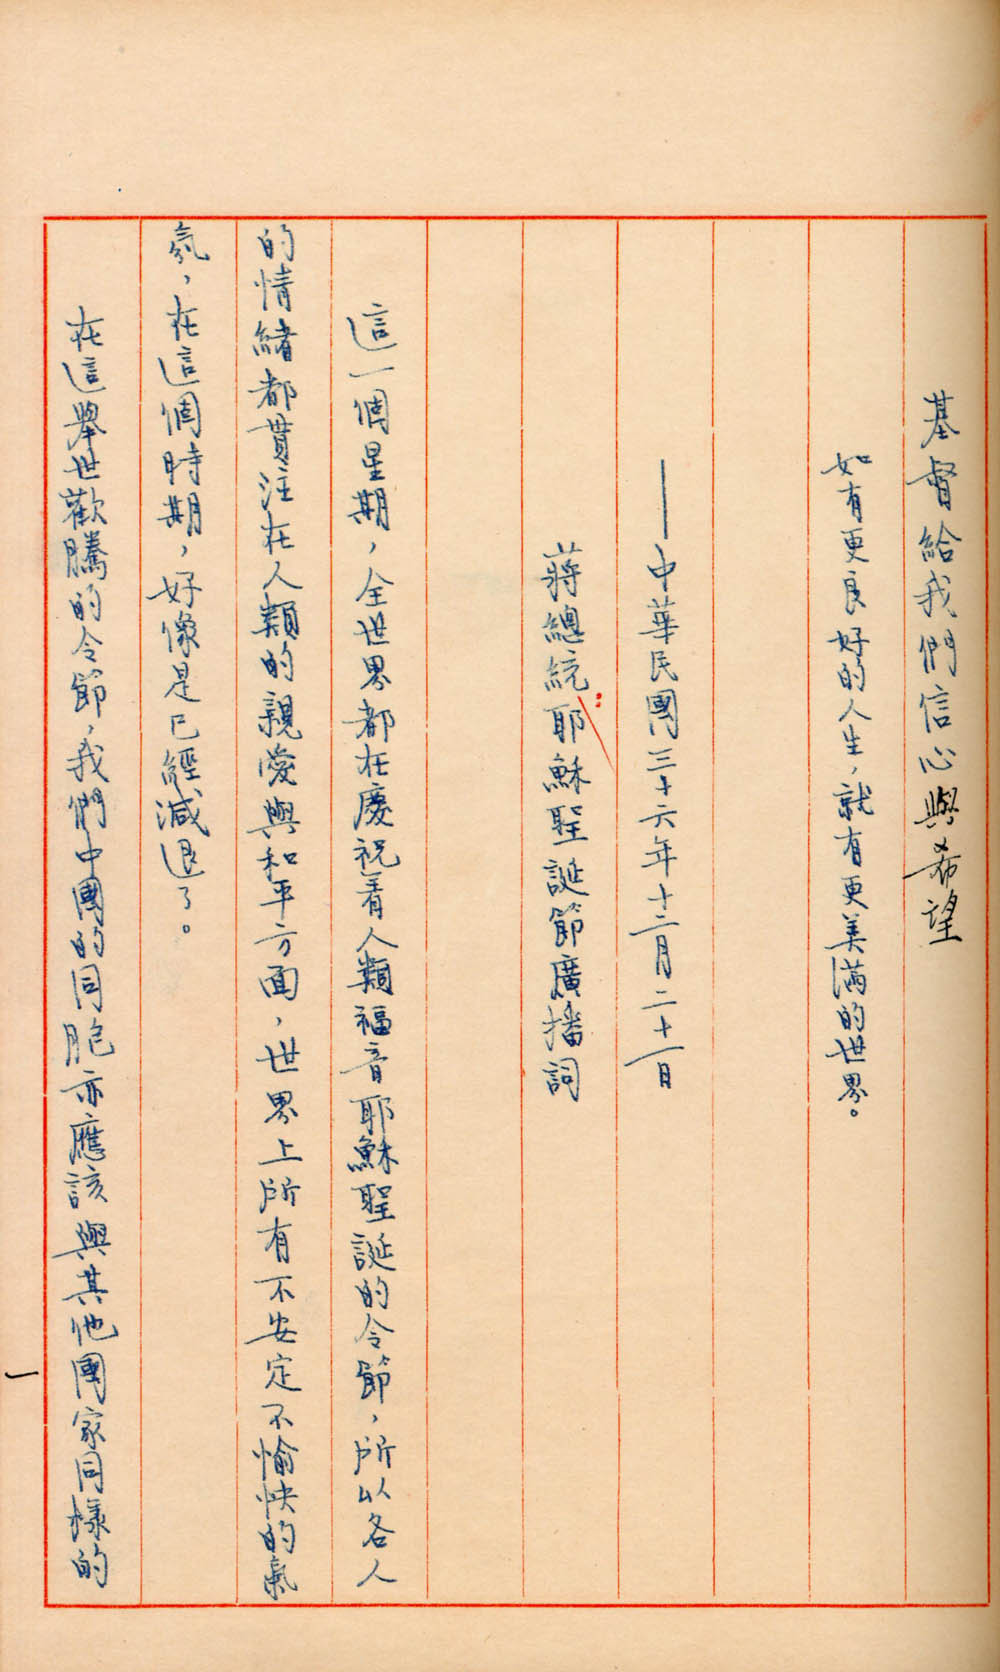 基督給我們信心與希望
如有更良好的人生，就有更美滿的世界。
——中華民國三十六年十二月二十一日
蔣總統：耶穌聖誕節廣播詞
這一個星期，全世界都在慶祝着人類福音耶穌聖誕的令節，所以各人
的情緒都貫注在人類的親愛與和平方面，世界上所有不安定不愉快的氣
氛，在這個時期，好像是已經減退了。
在這舉世歡騰的令節，我們中國的同胞亦應該與其他國家同樣的
一